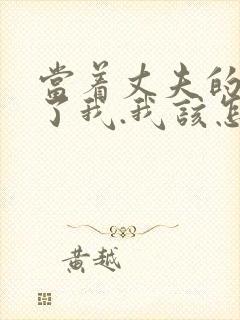 當着丈夫的
了我.我該怎
黄越